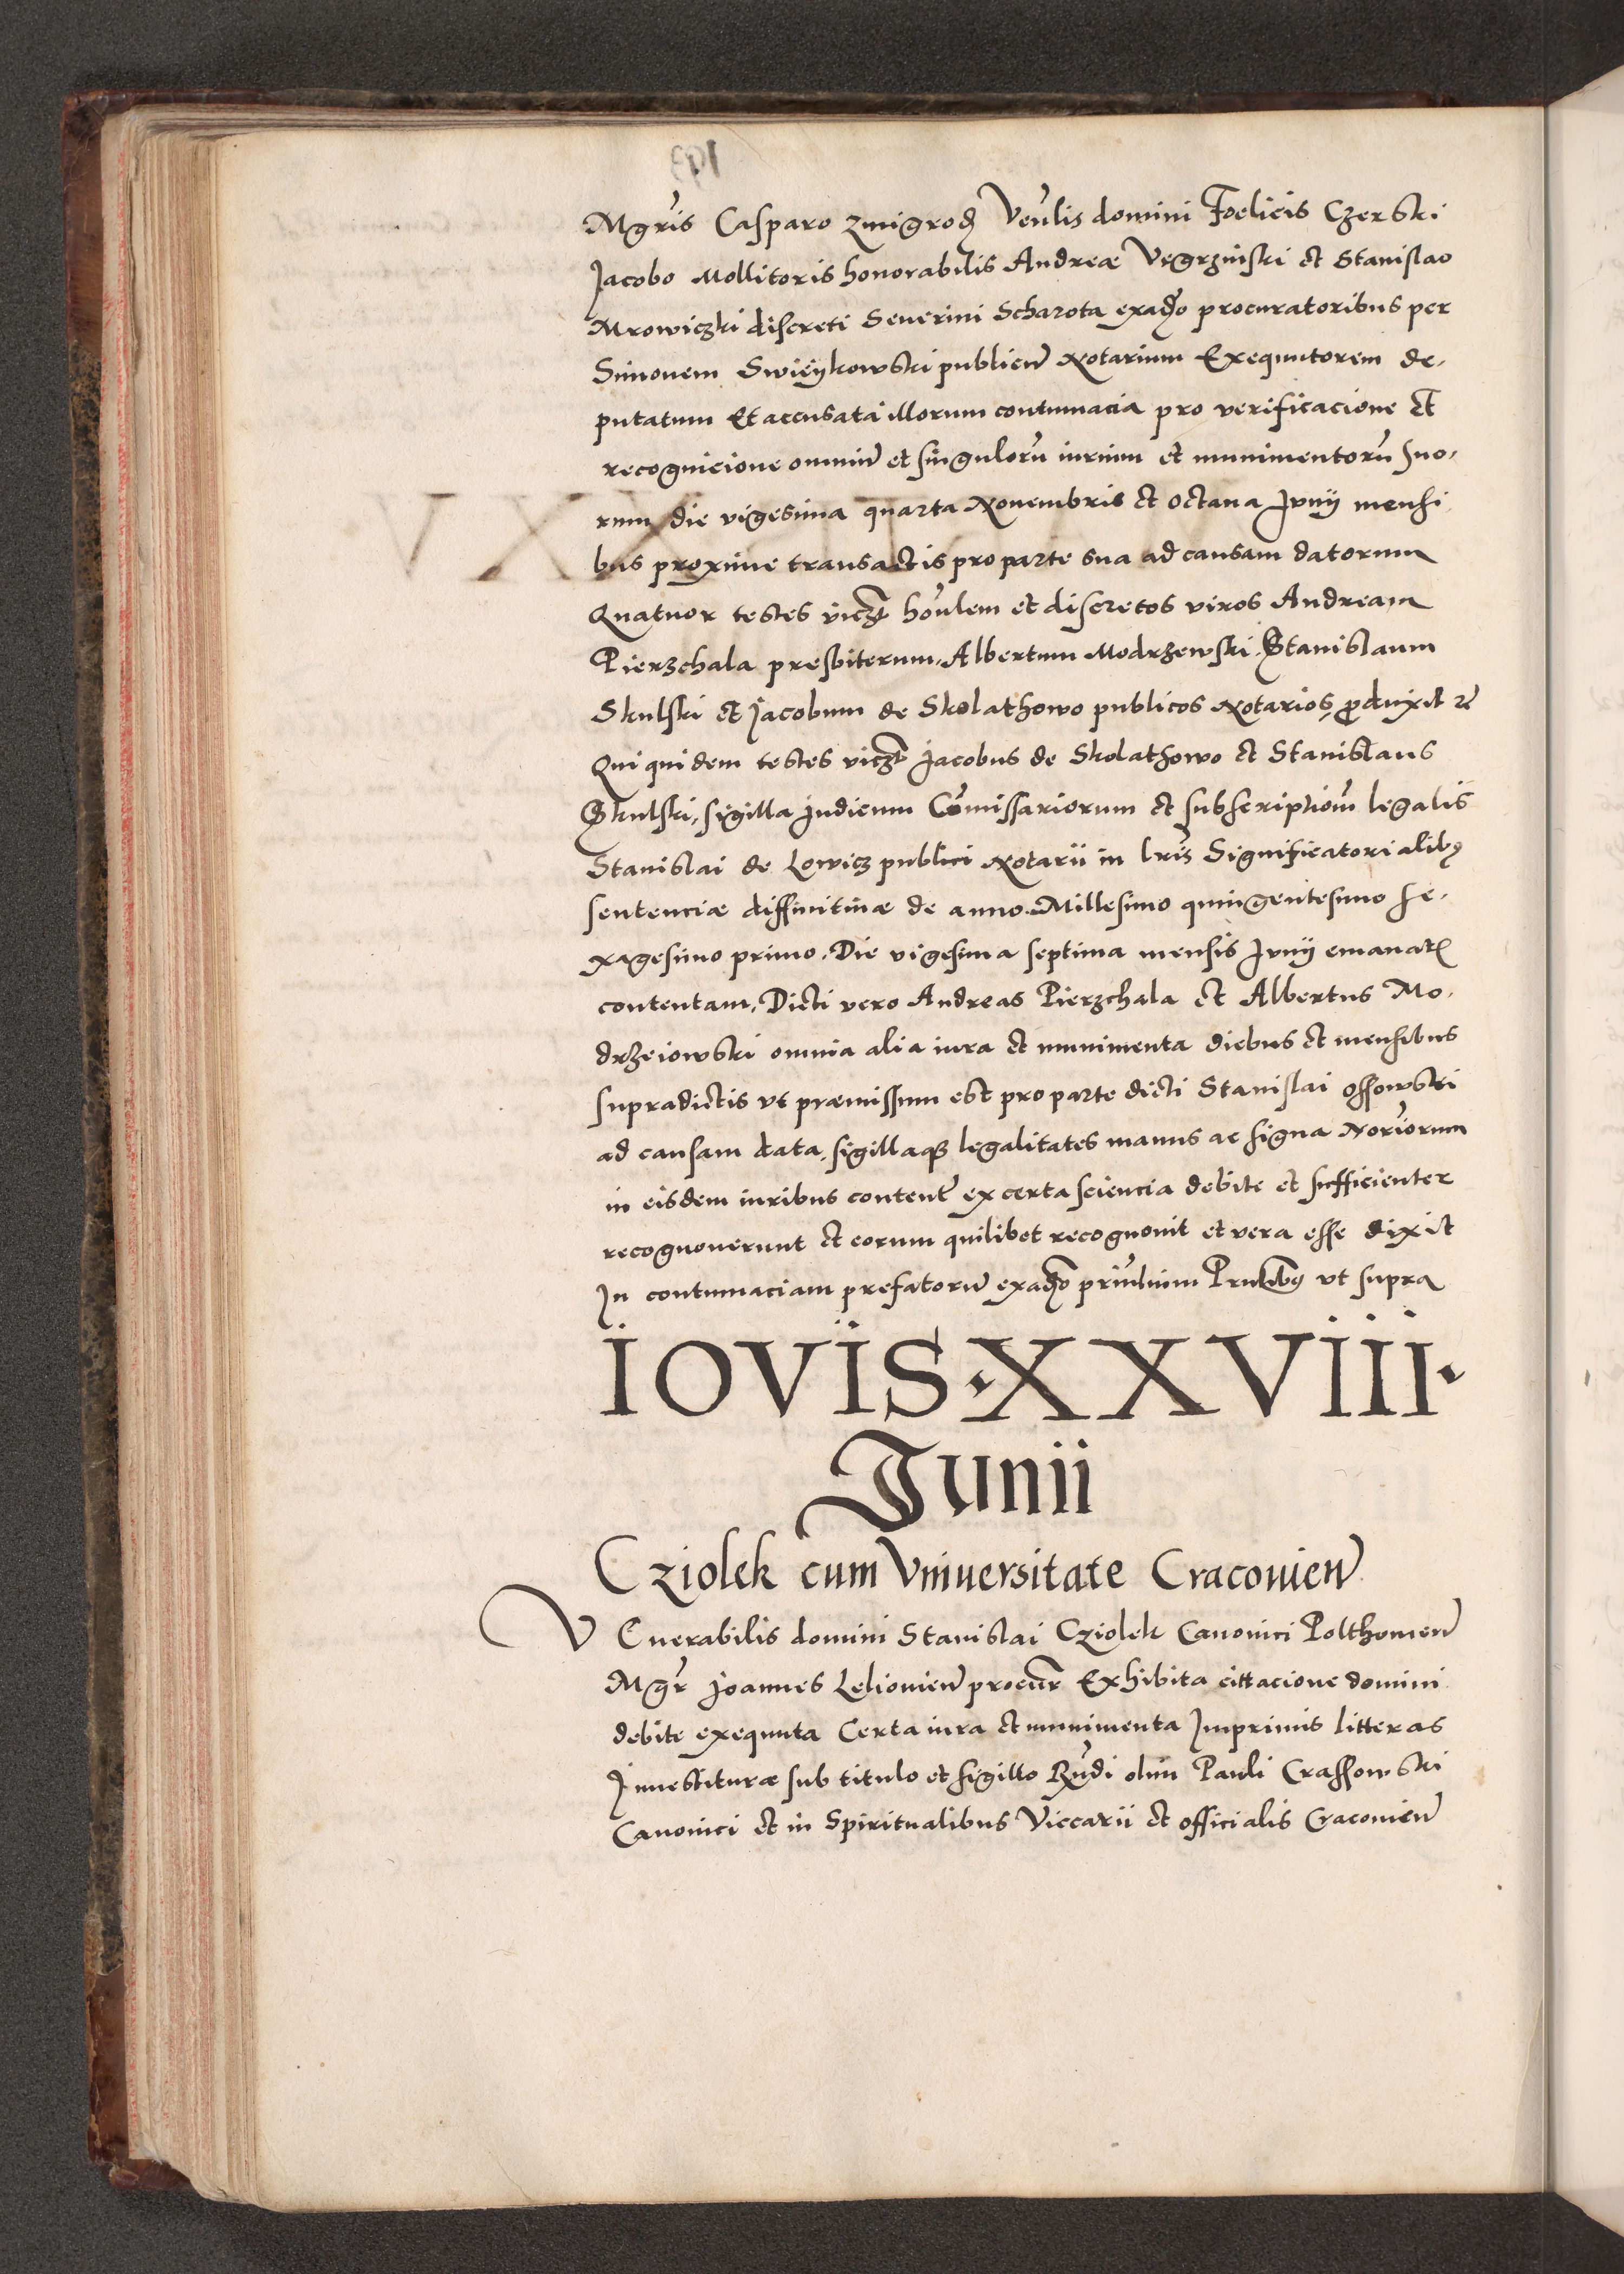 Mgris Casparo zmigrod Venlis domini Foelicis Czerski
Jacobo Mollitoris honorabilis Andreæ Vegrzinski et Stanislao
Mrowiczki discreti Seuerini Scharota exadso procuratoribus per
Simonem Swieykowski publicu Notarium Exequutorem de-
putatum Et accusata illorum contumacia pro verificacione et
recognicione omniu et singuloru iurium et munimentoru suo-
rum die vigesima quarta Nouembris et octaua Junij mensi
bus proxime transactis pro parte sua ad causam datorum
Quatuor testes viczt honlem et discretos viros Andream
Pierzchala presbiterum, Albertum Modrzewski, Stanislaum
Skulski et Jacobum de Skolathowo publicos Notarios, produxit rc
Qui quidem testes viczt Jacobus de Skolathowo et Stanislaus
Skulski, sigilla Judicum Comissariorum et subscriptiom legalis
Stanislai de Lowicz publici Notarii in lris Significatorialibus
sentenciæ diffinitiuæ de anno Millesimo quingentesimo se-
xagesimo primo, Die vigesima septima mensis Junij emanat
contentam, Dicti vero Andreas Pierzchala et Albertus Mo-
drzeiowski omnia alia iura et munimenta diebus et mensibus
supradictis vt præmissum est pro parte dicti Stanislai Ossowski
ad causam data, sigillaque legalitates manus ac signa Noriorum
in eisdem iuribus content ex certa sciencia debite et sufficienter
recognouerunt et eorum quilibet recognouit et vera esse dixit
In contumaciam prefatoru exadso prinlium vt supra
IOVIS·XXVIII·
Junii
Cziolek cum Vniuersitate Cracouien
VEnerabilis domini Stanislai Cziolek Canonici Polthouien
Mgr Joannes Leliouien procur Exhibita cittacione domini
debite exequuta Certa iura et munimenta Imprimis litteras
Inuestituræ sub titulo et sigillo Rndi olim Pauli Crassowski
Canonici et in Spiritualibus Viccarii et officialis Cracouien